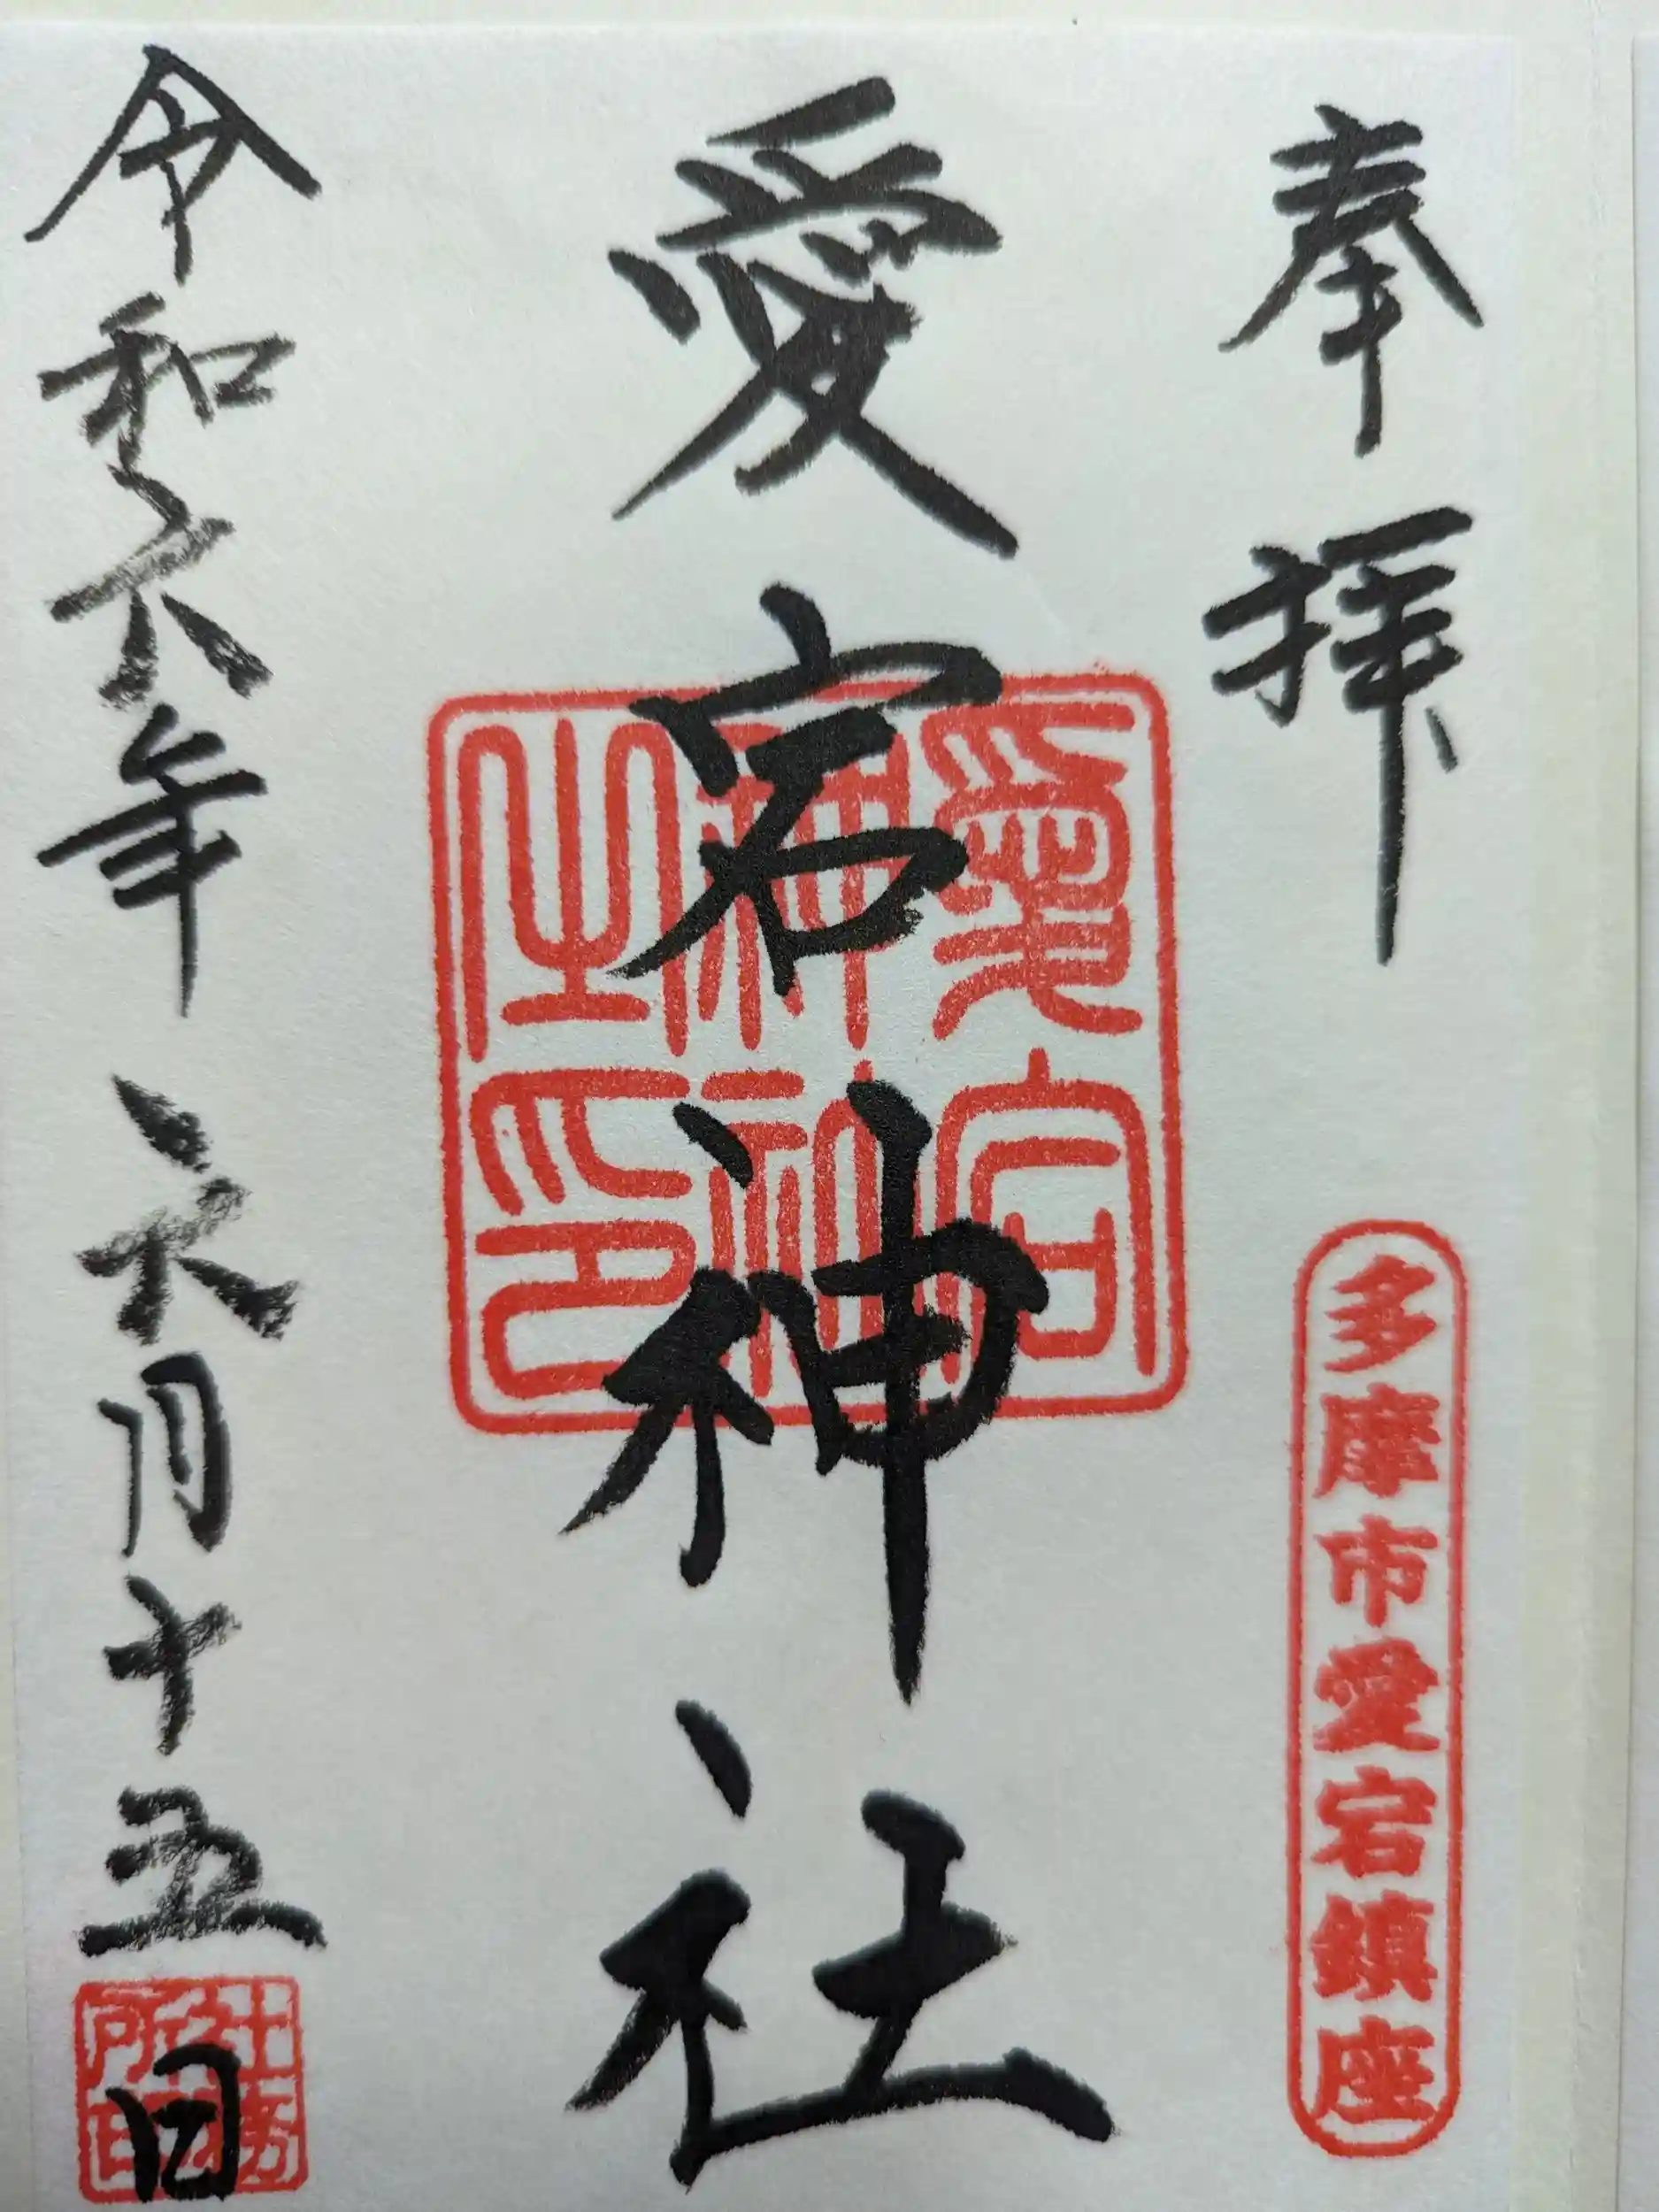 奉拝
多摩市愛宕鎮座
愛宕神社
愛宕
神社
之印
令和六年六月十五日
社務
所印